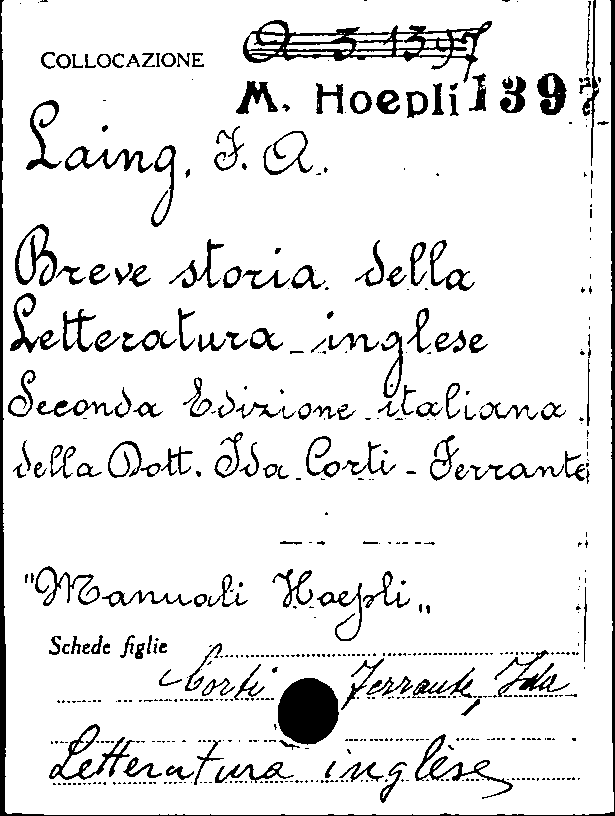 COLLOCAZIONE A 3. 1397
M. Hoepli 1397
Laing, F. A.
Breve storia della
Letteratura inglese
Seconda Edizione italiana
della Dott. Ida Corti - Ferrante
"Manuali Hoepli„
Schede figlie
Corti Ferrante, Ida
Letteratura inglese